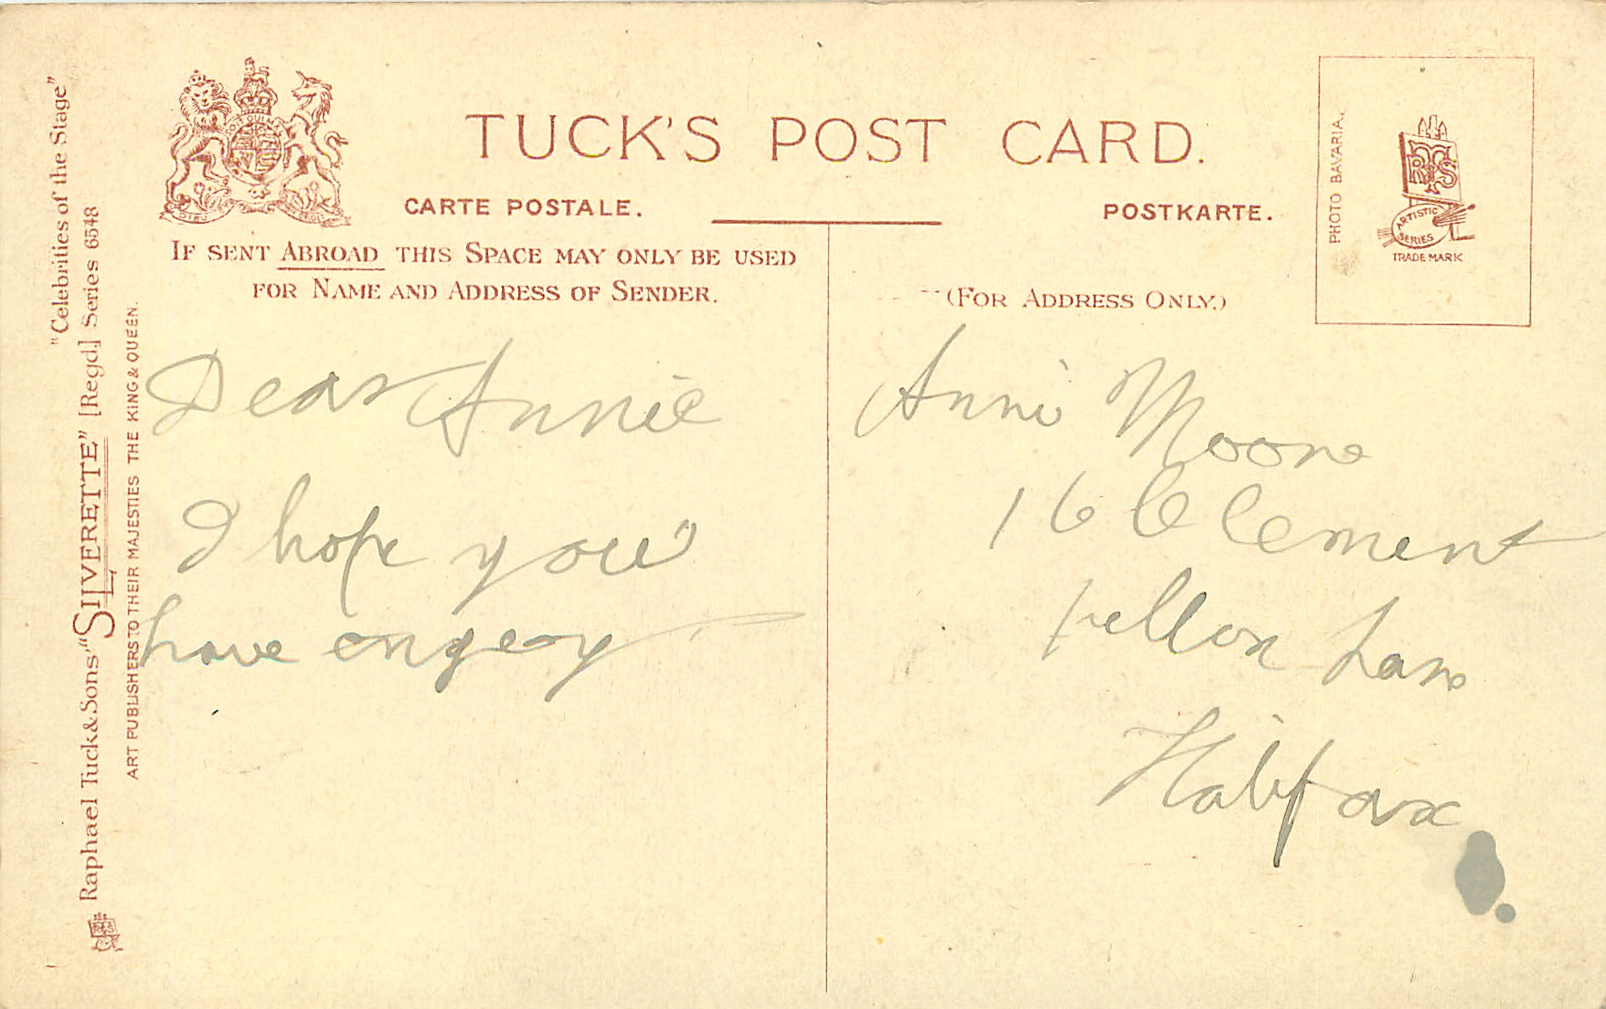 "Celebrities of the Stage"
Raphael Tuck & Sons' "SILVERETTE" [Regd.] Series 6548
ART PUBLISHERS TO THEIR MAJESTIES THE KING & QUEEN.
TUCK'S POST CARD.
CARTE POSTALE.
POSTKARTE.
IF SENT ABROAD THIS SPACE MAY ONLY BE USED
FOR NAME AND ADDRESS OF SENDER.
(FOR ADDRESS ONLY.)
PHOTO BAVARIA.
RTS
ARTISTIC
SERIES
TRADE MARK
Dear Annie
I hope you
have
Anni Moore
16 Clement
Pellon Lane
Halifax